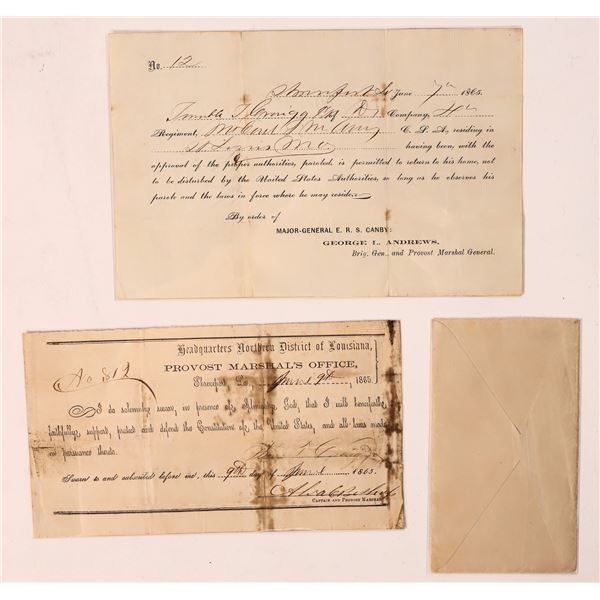 No. 12
Shreveport La June 7th 1865.
Company,
Regiment, C. S. A., residing in
St Louis Mo having been, with the
approval of the proper authorities, paroled, is permitted to return to his home, not
to be disturbed by the United States Authorities, so long as he observes his
parole and the laws in force where he may reside.
By order of
MAJOR-GENERAL E. R. S. CANBY:
GEORGE L. ANDREWS,
Brig. Gen., and Provost Marshal General.
Headquarters Northern District of Louisiana,
PROVOST MARSHAL'S OFFICE,
No 812
Shreveport La., June 9th, 1865.
I do solemnly swear, in presence of Almighty God, that I will henceforth
faithfully support, protect and defend the Constitution of the United States, and all laws made
in pursuance thereto.
Sworn to and subscribed before me, this 9th day of June 1865.
CAPTAIN AND PROVOST MARSHAL